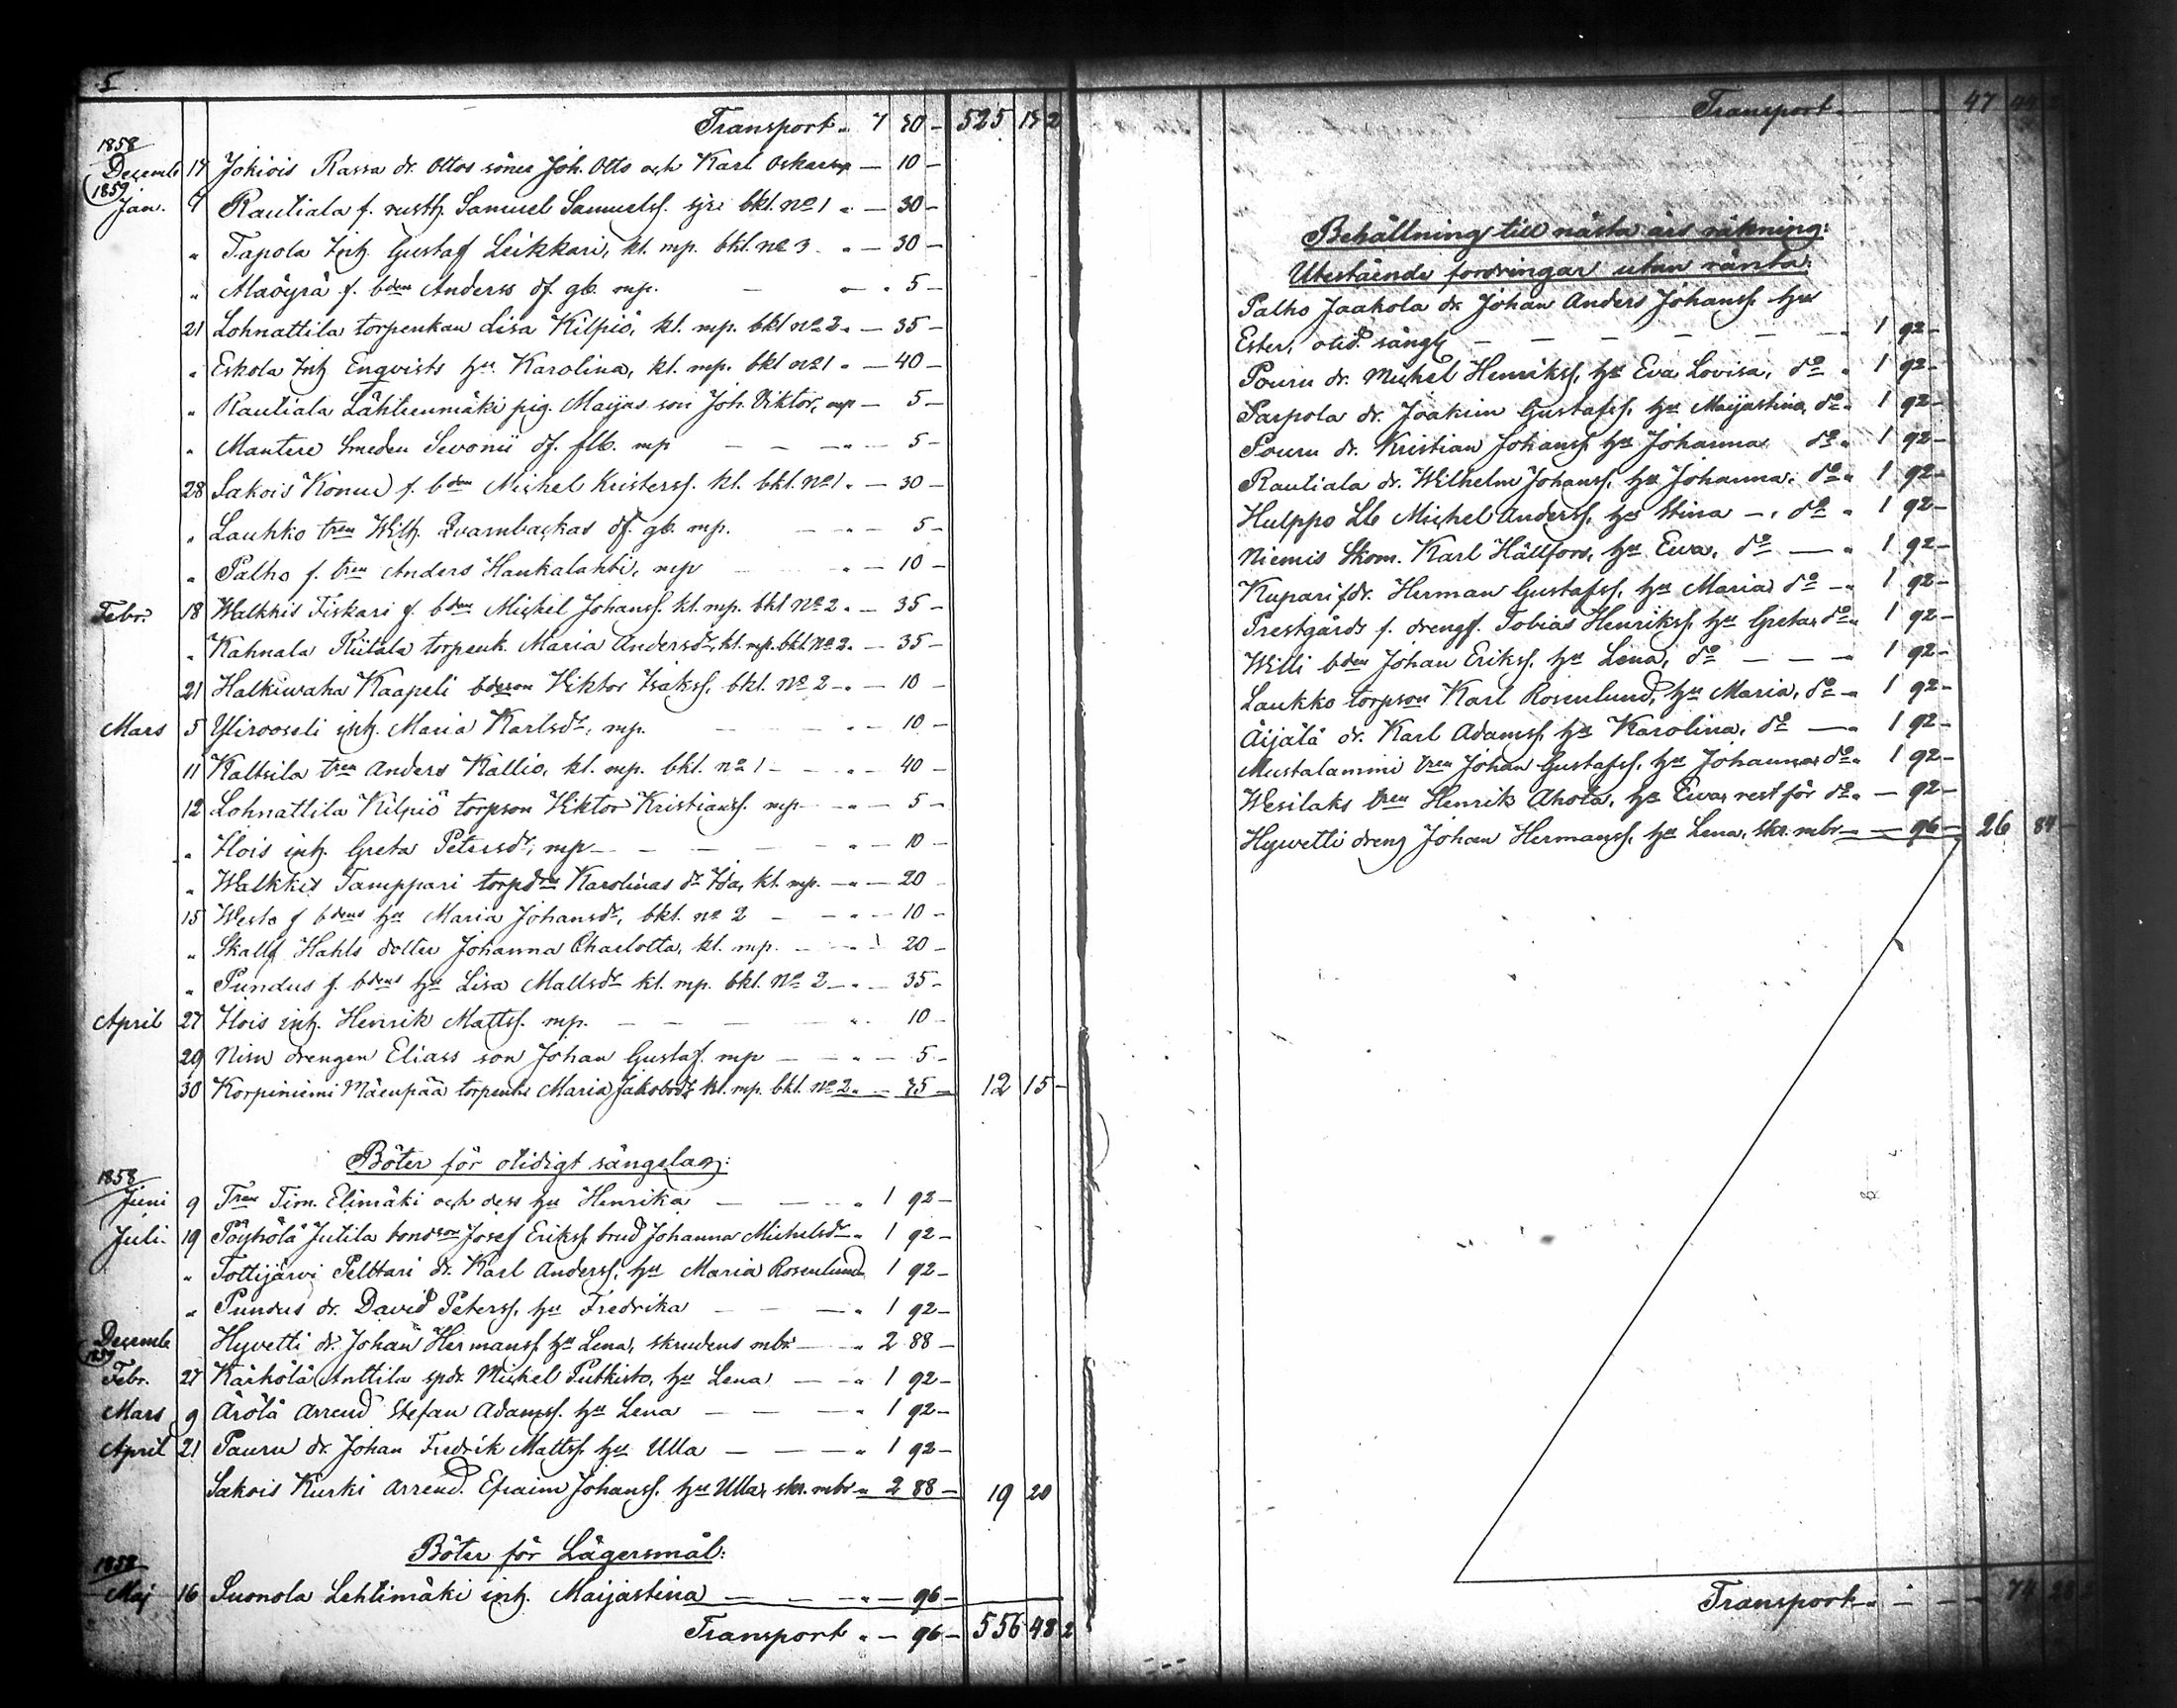 5
Transport „ 7 50 – 525 18 2
1858
Decemb 17 Jokiois Rassa dr. Ottos söner Joh. Otto och Karl Oskar mp – 10 –
1859
Jan. 7 Rautiala f. rusth. Samuel Samuelss. sjr. bkl. No 1 „ – 30 –
„ Tapola Inh. Gustaf Leikkari, kl. mp. bkl. No 3 „ – 30 –
„ f. bden Anderss df. gb. mp. – „ – 5 –
21 Lohnattila torpenkan Lisa Kilpiö, kl. mp. bkl No 2 „ – 35 –
„ Eskola Inh Enqvists hu Karolina, kl. mp. bkl No 1 „ – 40 –
„ Rautiala Lähteenmäki pig. Maijas son Joh. Viktor, mp – 5 –
„ Mantere Smeden Sevonii df. flb. mp – – „ – 5 –
28 Sakois Konnu f. bden Michel Kristerss. kl. bkl. No 1 „ – 30 –
„ Laukko tren Wilh. Qvarnbackas df. gb. mp. – „ – 5 –
„ Palho f. tren Anders Haukalahti, mp „ – 10 –
Febr. 18 Walkkis Fiskari f. bden Michel Johanss. kl. mp. bkl No 2 „ – 35 –
„ Kahnala Riitala torpenk. Maria Andersdr, kl. mp. bkl. No 2 „ – 35 –
21 Halkiwaha Kaapeli bdeson Viktor Isakss. bkl. No 2 – „ – 10 –
Mars 5 Ylirooseli inh. Maria Karlsdr, mp. „ – 10 –
11 Kaltsila tren Anders Kallio, kl. mp. bkl. No 1 – – „ – 40 –
12 Lohnattila Kilpiö torpson Viktor Kristianss. mp – „ – 5 –
„ Hois inh. Greta Petersdr, mp – – – – „ – 10 –
„ Walkkis Tamppari Karolinas dr Ida, kl. mp. – „ – 20
15 Westo f bdens hu Maria Johansdr, bkl. No 2 – – „ – 10 –
„ Skallf Hahls dotter Johanna Charlotta, kl. mp. – „ – 20 –
„ Pundus f. bdens hu Lisa Mattsdr kl. mp. bkl. No 2 – „ – 35 –
April 27 Hois inh. Henrik Mattss. mp. – – – „ 10 –
29 Nisu drengen Eliass son Johan Gustaf. mp – – „ – 5 –
30 Korpiniemi Mäenpää torpenk Maria Jakobsdr kl. mp. bkl. No 2 „ – 75 – 12 15 –
Böter för otidigt sängelag:
1858
Juni 9 Tren Tim. Elimäki och dess hu Henrika – – „ 1 92 –
Juli 19 Pöyhölä Jutila bondson Josef Erikss. brud Johanna Michelsdr „ 1 92 –
„ Tottijärvi Pelttari dr. Karl Anderss. hu Maria Rosenlund 1 92 –
„ Pundus dr. David Peterss. hu Fredrika – – „ 1 92 –
Decemb Hyvetti dr. Johan Hermanss. hu Lena, skrudens mbr – „ 2 88 –
1859
Febr. 27 Kärhölä Anttila spdr. Michel Putkisto, hu Lena – „ 1 92 –
Mars 9 Ärölä Arrend Stefan Adamss. hu Lena – – „ 1 92 –
April 21 Pauru dr. Johan Fredrik Mattss. hu Ulla – – „ 1 92 –
Sakois Kurki Arrend. Efraim Johanss. hu Ulla, skr. mbr „ 2 88 – 19 20
Böter för Lägersmål:
1858
Maj 16 Suonola Lehtimäki inh. Maijastina – – „ – 96 –
Transport „ – 96 – 556 48 2
Transport 47 44 2
Behållning till nästa års räkning:
Utestående fordringar utan ränta:
Palho Jaakola dr Johan Anders Johanss. hu
Ester, otid. sängl – – – – – – „ 1 92 –
Pouru dr. Michel Henrikss. hu Eva Lovisa, do „ 1 92 –
Parpola dr. Joakim Gustafss. hu Maijastina, do „ 1 92 –
Pouru dr. Kristian Johanss. hu Johanna do „ 1 92 –
Rautiala dr. Wilhelm Johanss. hu Johanna, do „ 1 92 –
Hulppo Lb Michel Anderss. hu Stina –, do „ 1 92 –
Niemis Skom. Karl Hällfors, hu Ewa, do – „ 1 92 –
Kupari fdr. Herman Gustafss. hu Maria do – „ 1 92 –
Prestgårds f. drengs. Tobias Henrikss. hu Greta, do „ 1 92 –
Willi bden Johan Erikss. hu Lena, do – – „ 1 92 –
Laukko torpson Karl Rosenlund, hu Maria, do – „ 1 92 –
Äijälä dr. Karl Adamss. hu Karolina, do – „ 1 92 –
Mustalammi tren Johan Gustafss. hu Johanna, do „ 1 92 –
Wesilaks tren Henrik Ahola, hu Ewa, rest för do „ – 92 –
Hyvetti dreng Johan Hermanss. hu Lena, skr. mbr – – 96 – 26 84 –
Transport – „ – – 74 28